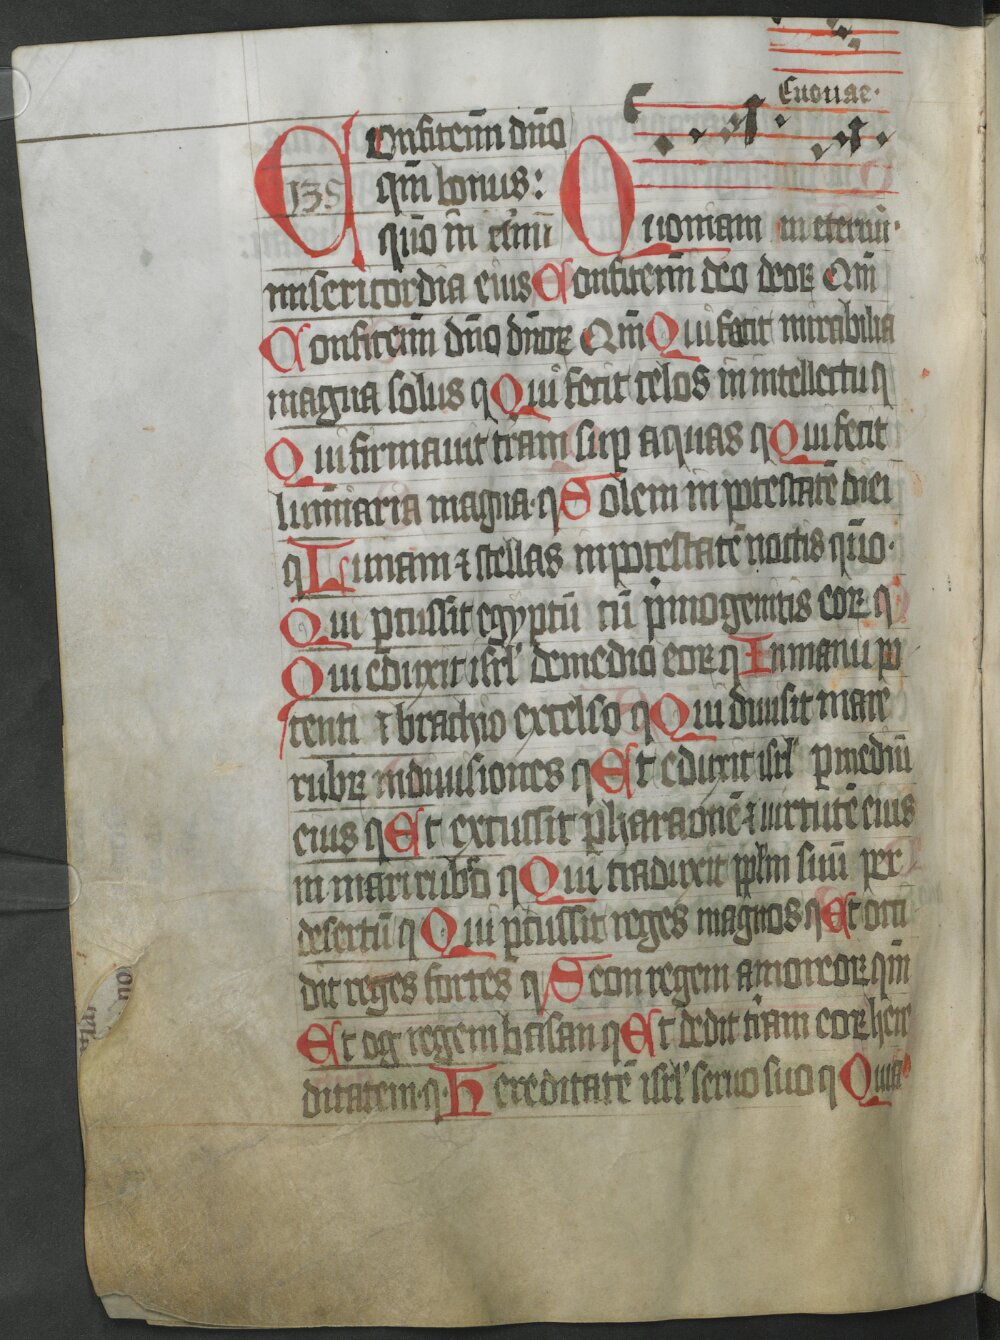 Euouae·
Confitemī dn̄o
135
qm̄ bonus:
quō ī et̄nū Quoniam in eternū·
misericordia eius Confitemī deo deoꝝ Qm̄
Confitemī dn̄o dn̄oꝝ Qm̄ Qui facit mirabilia
magna solus q Qui fecit celos in intellectu q
Qui firmauit t̄ram sup̄ aquas q Qui fecit
lumīaria magna· q Solem in potestatē diei
q Lunam ⁊ stellas in potestatē noctis quō·
Qui ꝑcussit egyptū cū pͥmogenitis eoꝝ q
Qui eduxit isrl̄ de medio eoꝝ q In manu po
tenti ⁊ brachio excelso q Qui diuisit mare
rubꝝ in diuisiones q Et eduxit isrl̄ ꝑ mediū
eius q Et excussit pharaonē ⁊ uirtutē eius
in mari rubͦ q Qui traduxit pp̄lm suū per
desertū q Qui ꝑcussit reges magnos q Et occi
dit reges fortes q Seon regem amoreoꝝ qm̄
Et og regem basan q Et dedit t̄ram eoꝝ here
ditatem· q· Hereditatē isrl̄ seruo suo q Quia
no